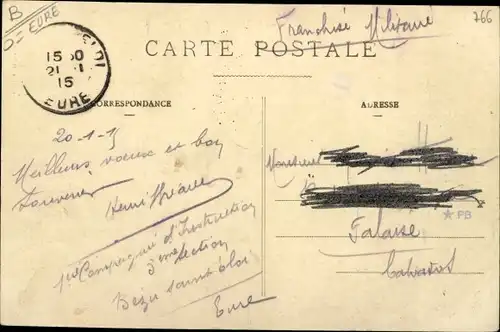 B
D = EURE
766
Franchise Militaire
CARTE POSTALE
15 30
21 - 1
15
EURE
CORRESPONDANCE
ADRESSE
20-1-15
Meilleurs vœux et bon
Souvenir
Henri
1re Compagnie d'Instruction
3eme Section
Bezu saint éloi
Eure
Monsieur
★ PB
Falaise
Calvados